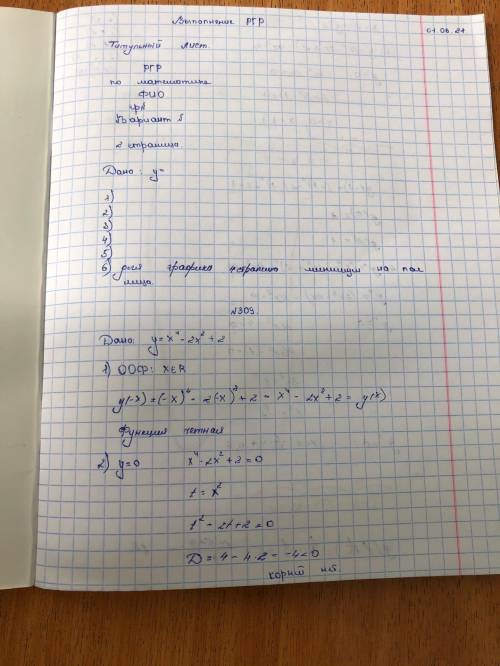 Выполнение РГР
01.06.21
Титульный лист
РГР
по математике
ФИО
Вариант
2 страница
Дано: y=
1)
2)
3)
4)
5)
6) для графика страницы минимум на пол
лица.
№309.
Дано: y=x⁴-2x²+2
1) ООФ: x∈R
y(-x)=(-x)⁴-2(-x)²+2=x⁴-2x²+2=y(x)
Функция четная
2) y=0 x⁴-2x²+2=0
t=x²
t²-2t+2=0
D=4-4·2=-4<0
корней нет